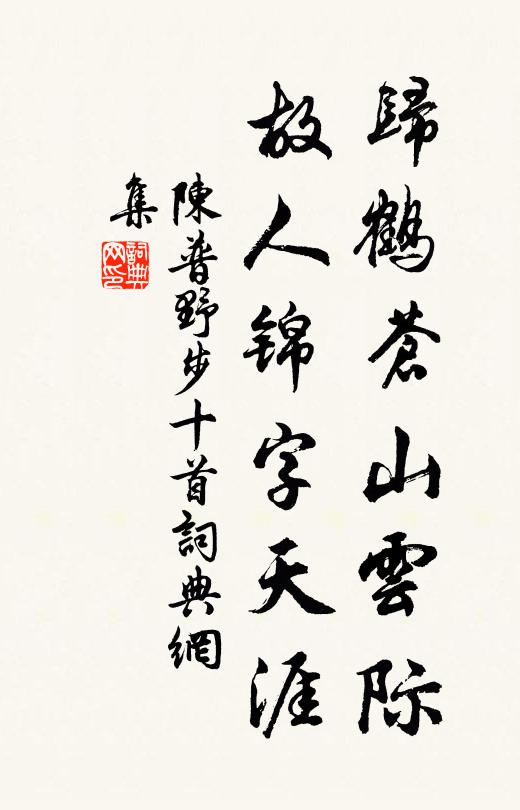 歸鶴蒼山雲际
故人锦字天涯
陳普野步十首詞典網
集
詞典網印